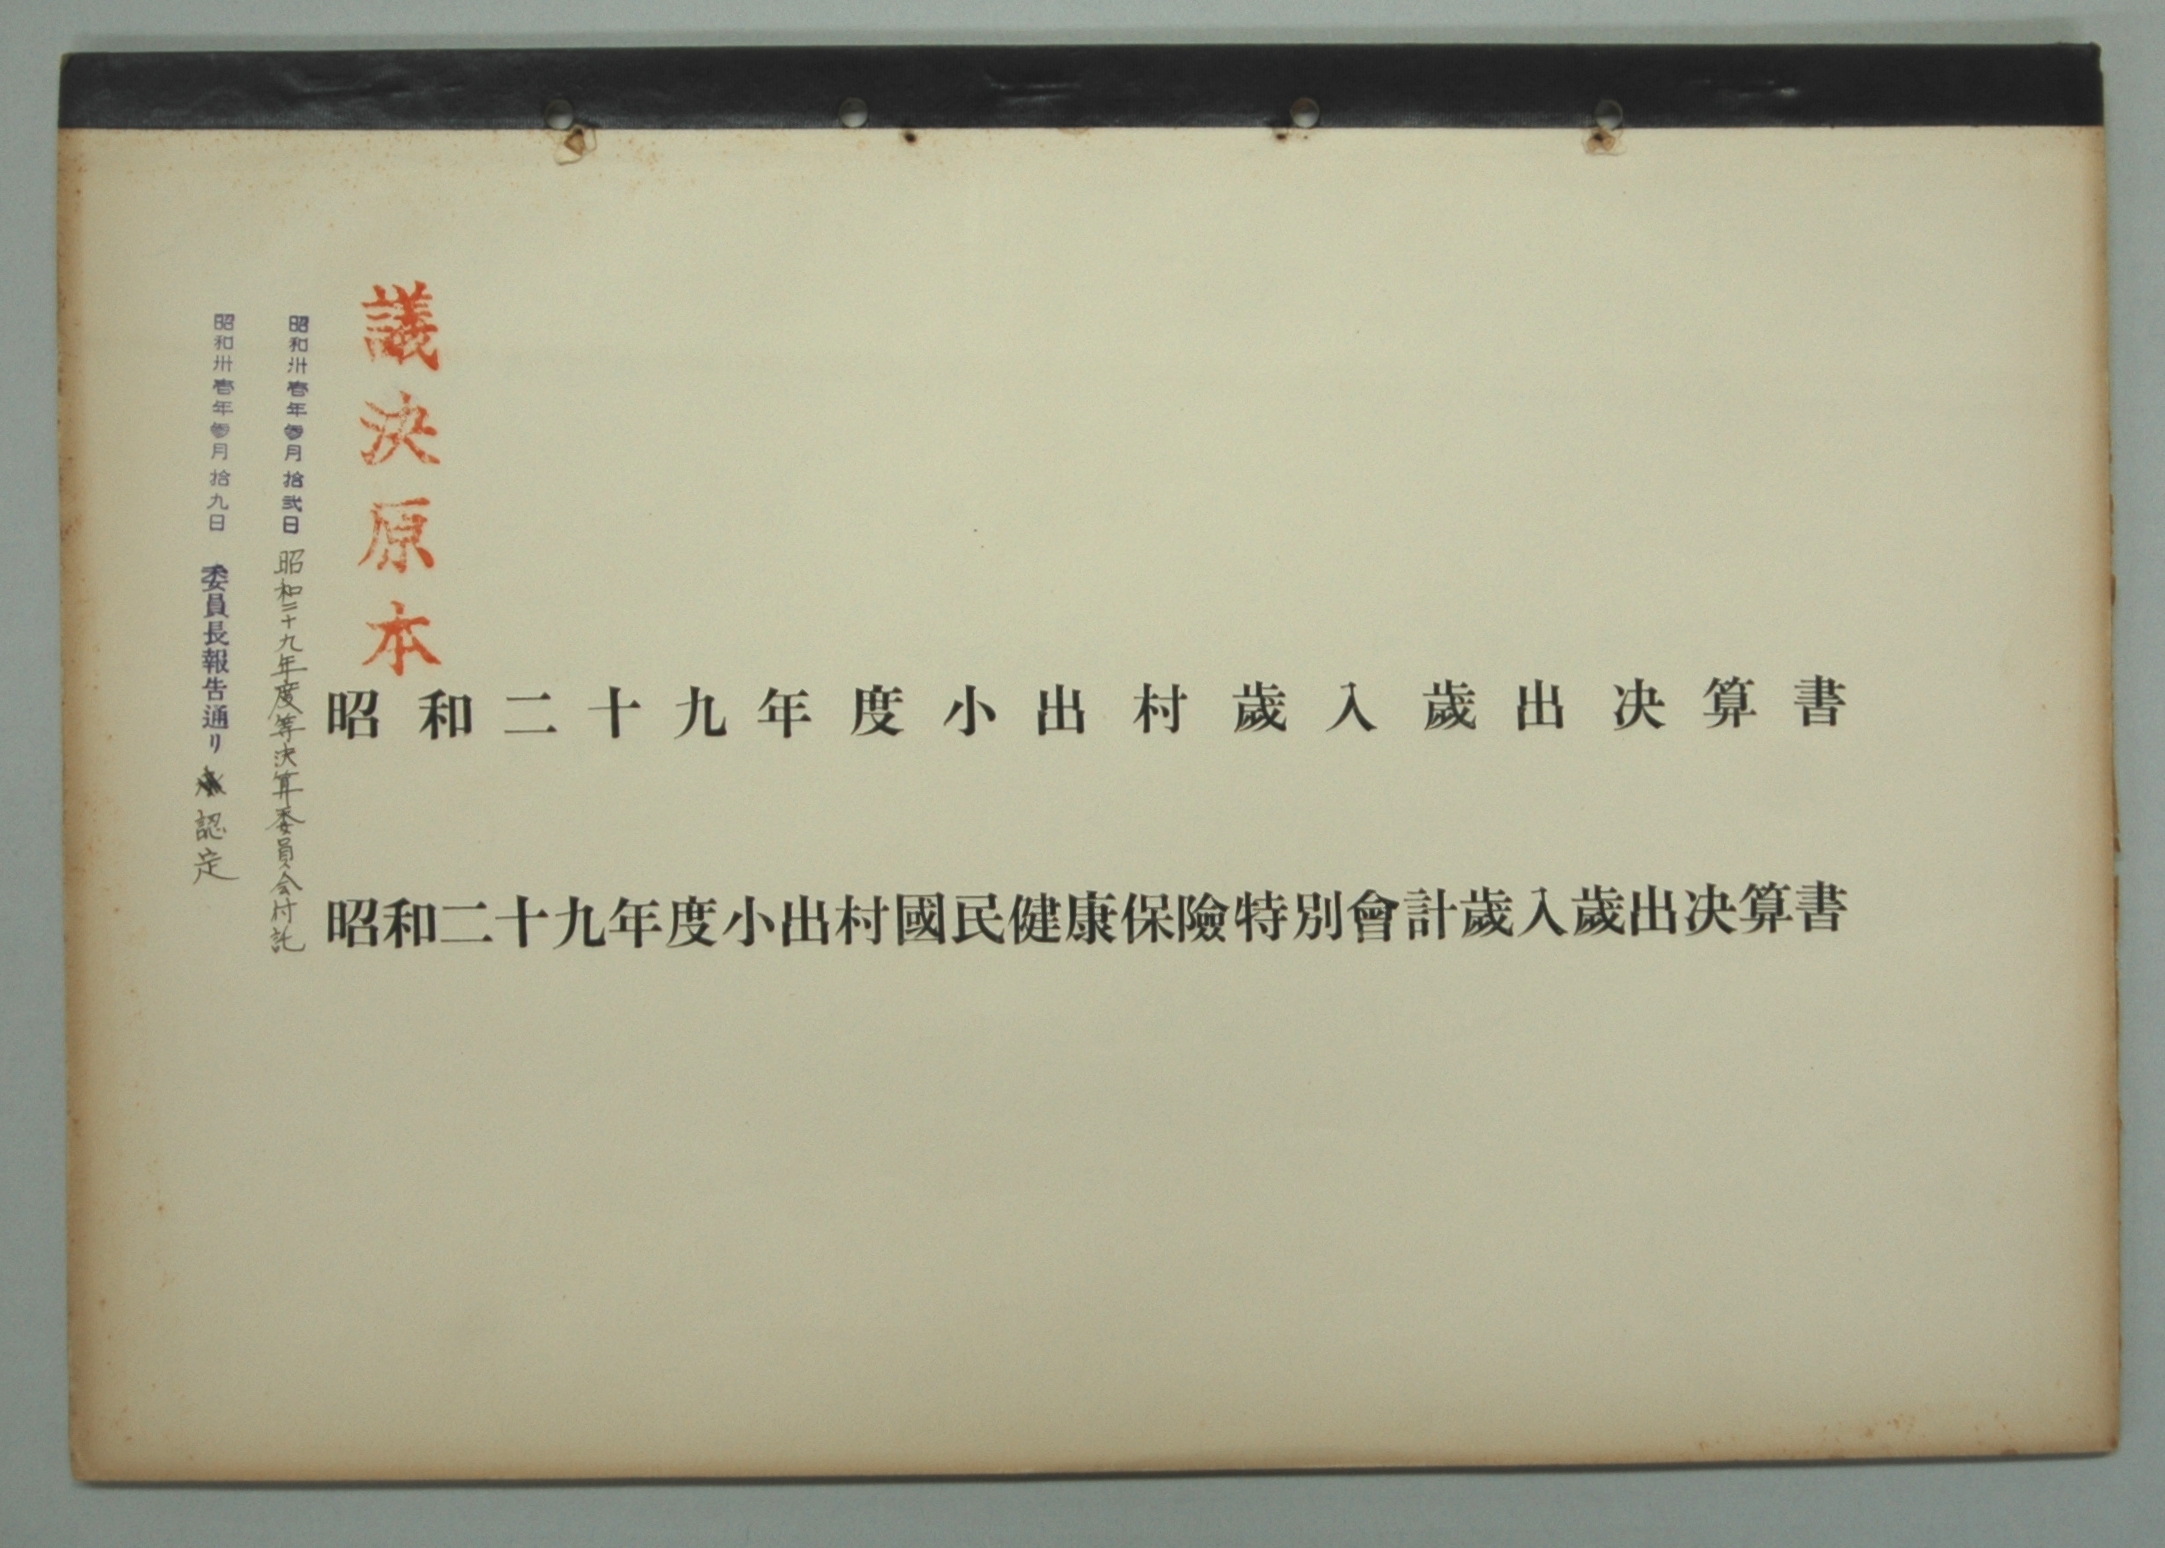 議決原本
昭和卅壱年参月拾弐日 昭和二十九年度等決算委員会付託
昭和卅壱年参月拾九日 委員長報告通リ 認定
昭和二十九年度小出村歲入歲出决算書
昭和二十九年度小出村國民健康保險特別會計歲入歲出决算書